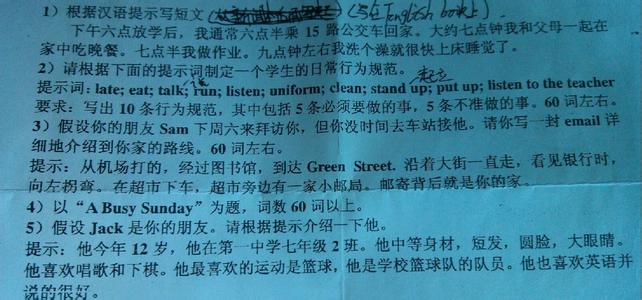 1）根据汉语提示写短文（写在English book上）
下午六点放学后，我通常六点半乘 15 路公交车回家。大约七点钟我和父母一起在
家中吃晚餐。七点半我做作业。九点钟左右我洗个澡就很快上床睡觉了。
2）请根据下面的提示词制定一个学生的日常行为规范。 起立
提示词: late; eat; talk; run; listen; uniform; clean; stand up; put up; listen to the teacher
要求：写出 10 条行为规范，其中包括 5 条必须要做的事，5 条不准做的事。60 词左右。
3）假设你的朋友 Sam 下周六来拜访你，但你没时间去车站接他。请你写一封 email 详
细地介绍到你家的路线。60 词左右。
提示：从机场打的，经过图书馆，到达 Green Street. 沿着大街一直走，看见银行时，
向左拐弯。在超市下车，超市旁边有一家小邮局。邮寄背后就是你的家。
4）以“A Busy Sunday”为题，词数 60 词以上。
5）假设 Jack 是你的朋友。请根据提示介绍一下他。
提示：他今年 12 岁，他在第一中学七年级 2 班。他中等身材，短发，圆脸，大眼睛。
他喜欢唱歌和下棋。他最喜欢的运动是篮球，他是学校篮球队的队员。他也喜欢英语并
说的很好。